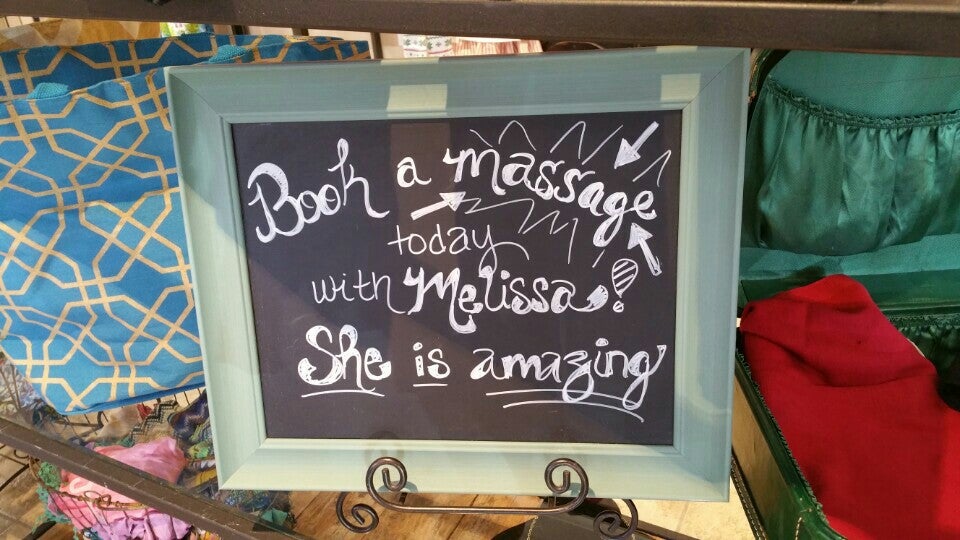 Book a massage
today
with Melissa!
She is amazing